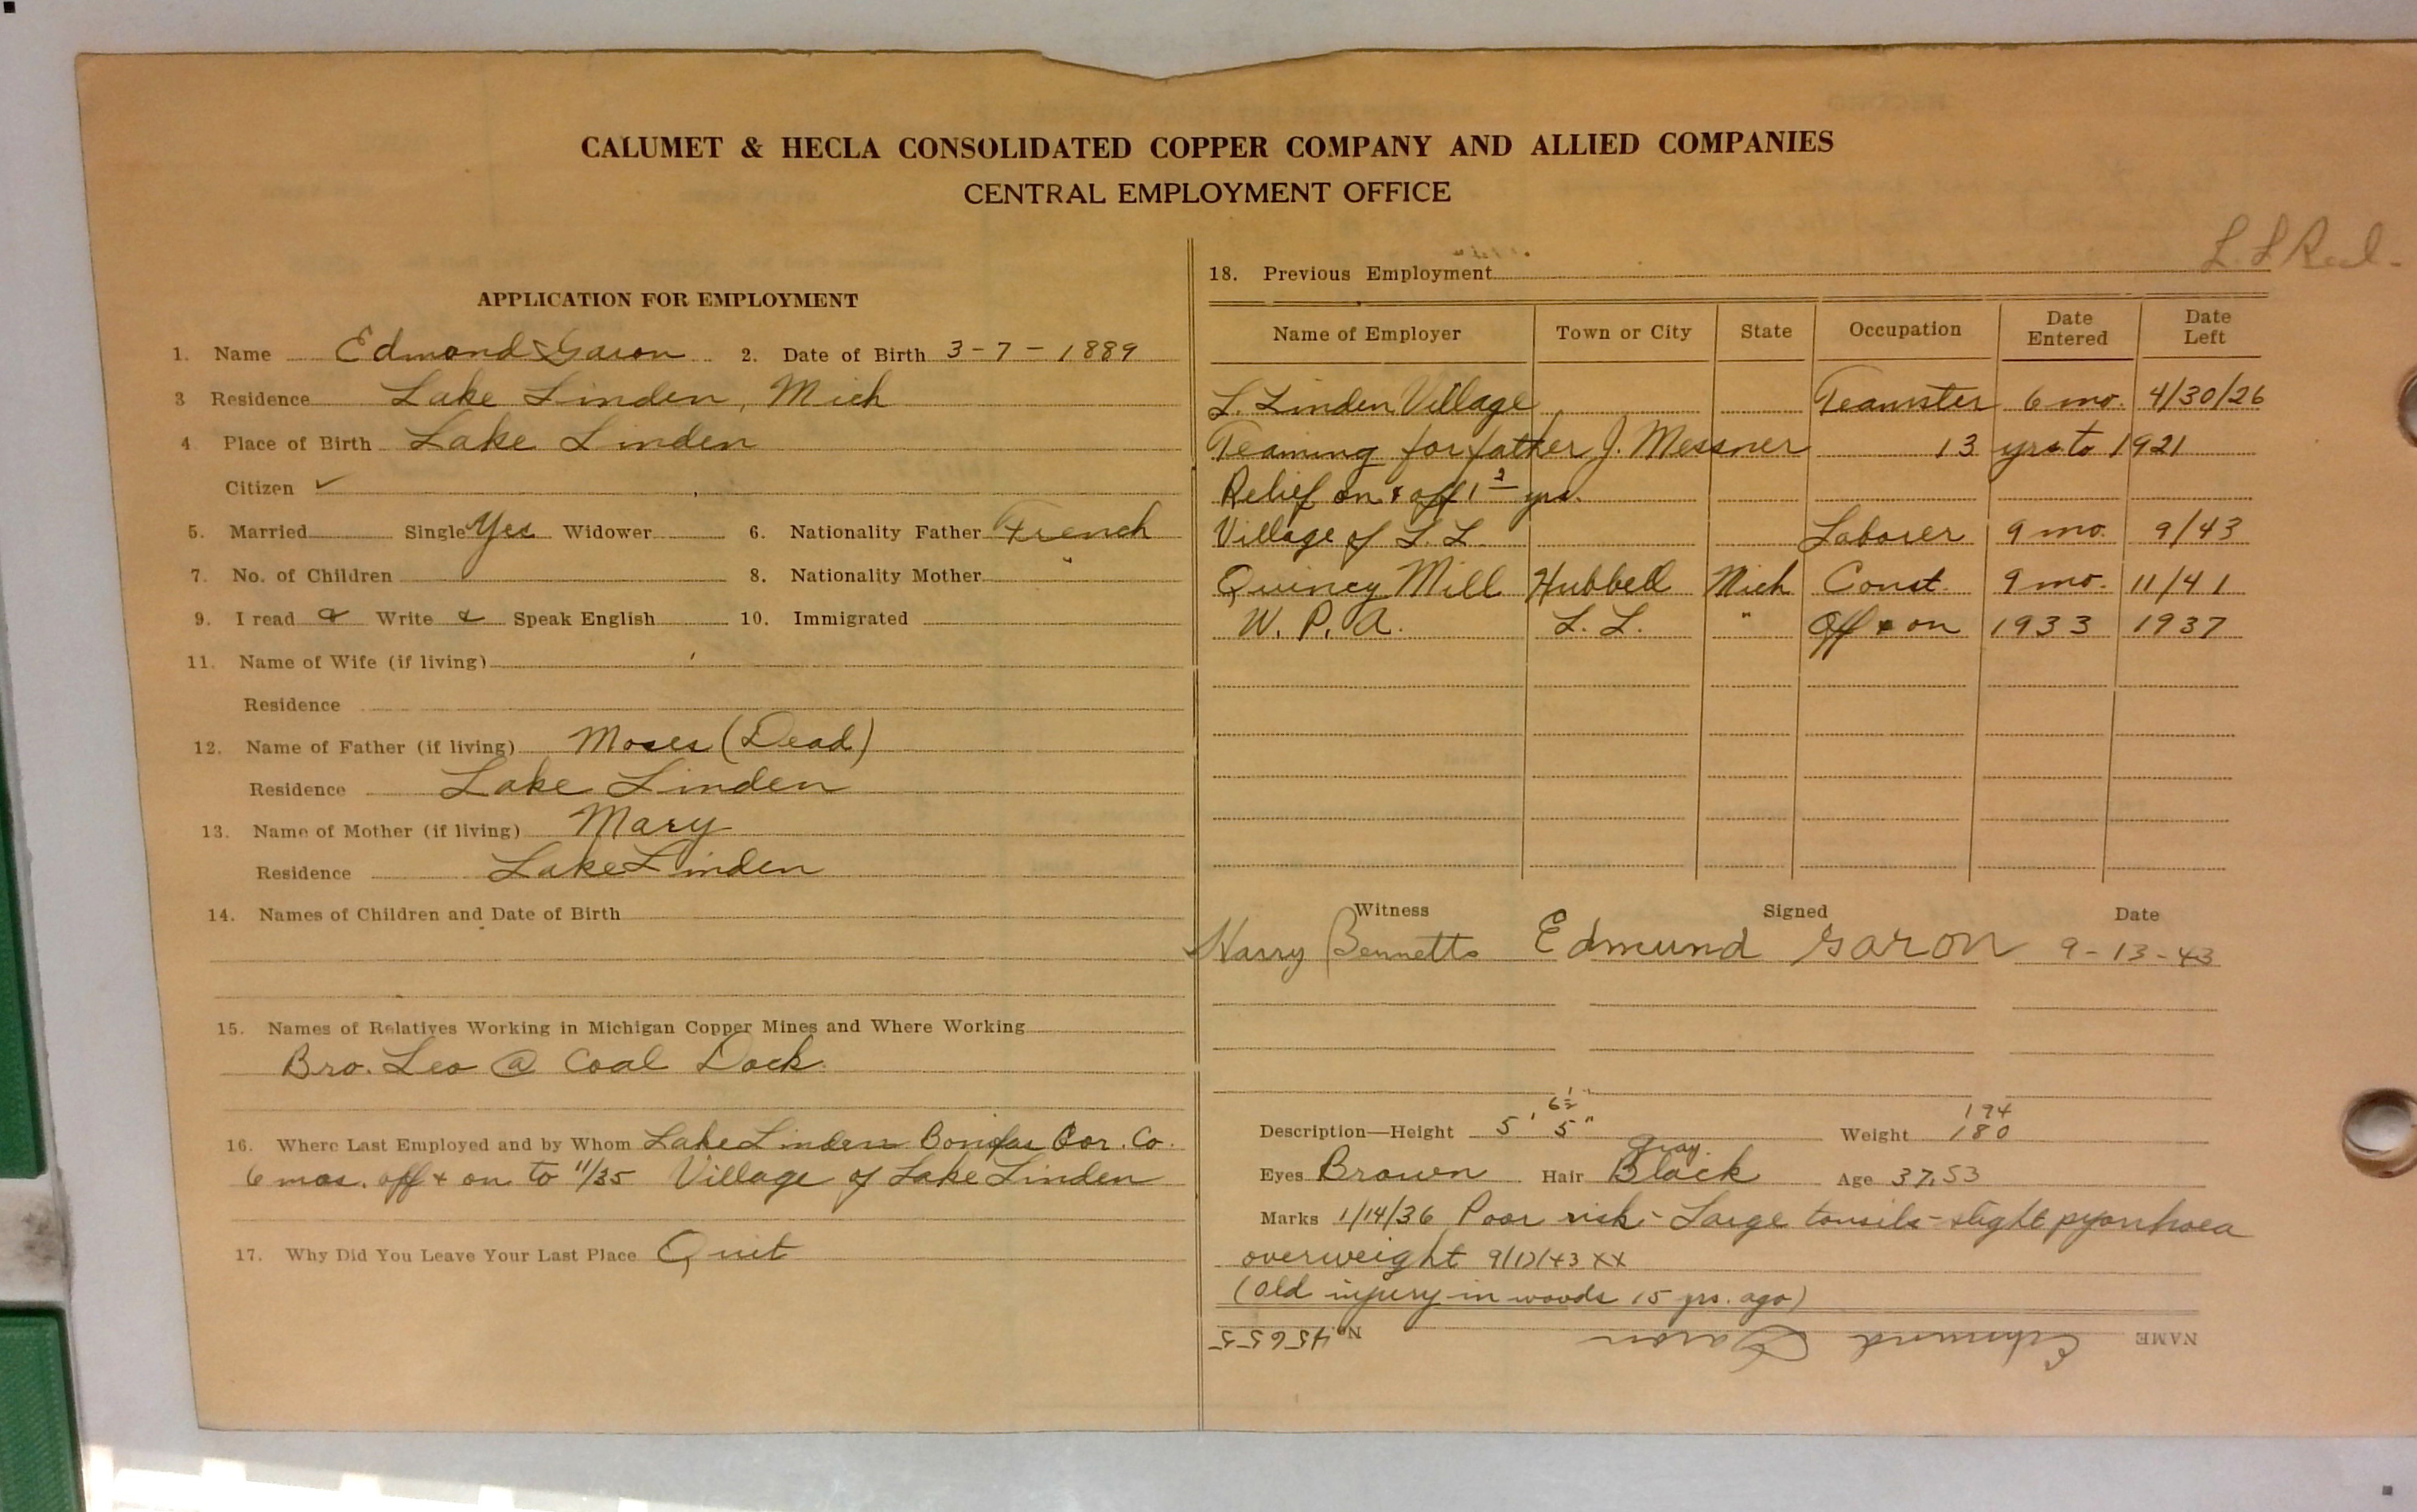 CALUMET & HECLA CONSOLIDATED COPPER COMPANY AND ALLIED COMPANIES
CENTRAL EMPLOYMENT OFFICE
APPLICATION FOR EMPLOYMENT
1. Name Edmond Garon 2. Date of Birth 3-7-1889
3 Residence Lake Linden, Mich
4 Place of Birth Lake Linden
Citizen ✓
5. Married Single Yes Widower 6. Nationality Father French
7. No. of Children 8. Nationality Mother "
9. I read & Write & Speak English 10. Immigrated
11. Name of Wife (if living)
Residence
12. Name of Father (if living) Moses (Dead)
Residence Lake Linden
13. Name of Mother (if living) Mary
Residence Lake Linden
14. Names of Children and Date of Birth
15. Names of Relatives Working in Michigan Copper Mines and Where Working
Bro. Leo @ Coal Dock
16. Where Last Employed and by Whom Lake Linden Co.
6 mos. off & on to 11/35 Village of Lake Linden
17. Why Did You Leave Your Last Place Quit
L. L
18. Previous Employment
Name of Employer Town or City State Occupation Date Entered Date Left
L. Linden Village Teamster 6 mo. 4/30/26
Teaming for father J. Messner 13 yrs to 1921
Relief on & off 1 yrs.
Village of L. L. Laborer 9 mo. 9/43
Quincy Mill Hubbell Mich Const. 9 mo. 11/41
W. P. A. L. L. " Off & on 1933 1937
Witness Signed Date
Harry Bennetts Edmund Garon 9-13-43
6½" 194
Description—Height 5' 5" Weight 180
Gray
Eyes Brown Hair Black Age 37, 53
Marks 1/14/36 Poor risk - Large tonsils - slight pyorrhoea
overweight 9/13/43 XX
(Old injury in woods 15 yrs. ago)
NAME Edmund Garon No. 45655